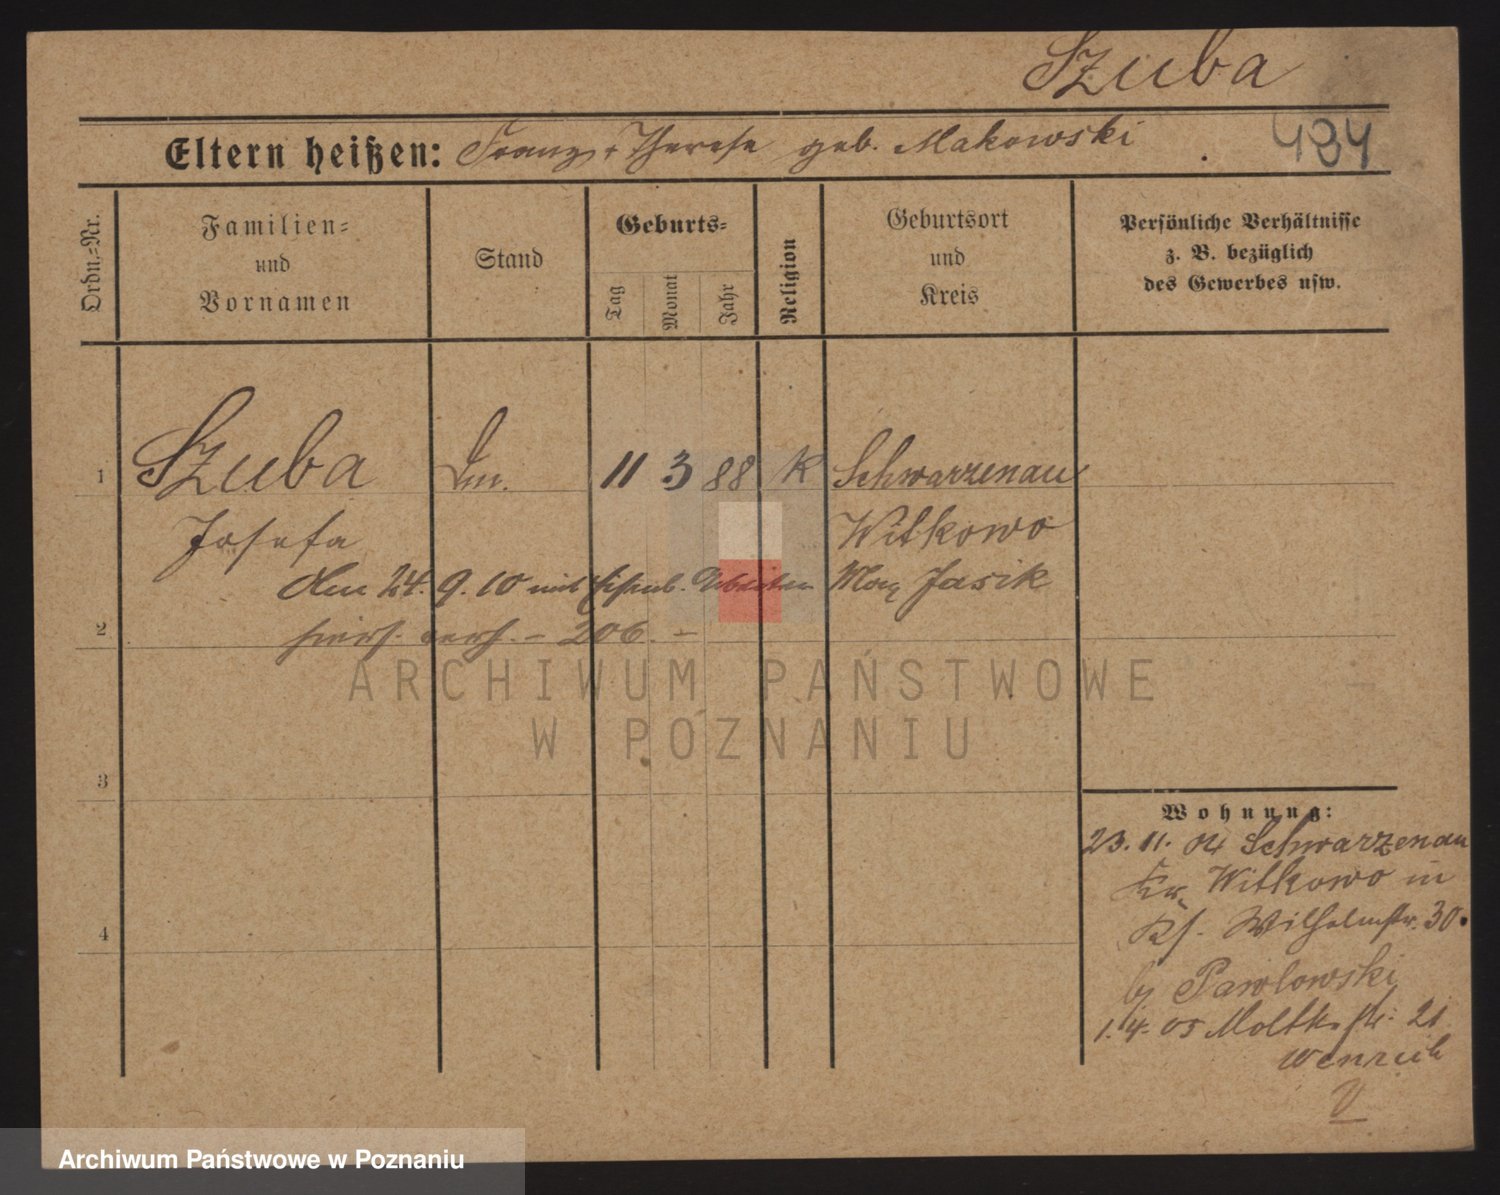 Szuba
Eltern heißen: Franz + Therese geb. Makowski
434
Ordn.-Nr.
Familien-
und
Vornamen
Stand
Geburts-
Tag
Monat
Jahr
Religion
Geburtsort
und
Kreis
Persönliche Verhältnisse
z. B. bezüglich
des Gewerbes usw.
1 Szuba 11 3 88 K Schwarzenau
Josefa Witkowo
den 24. 9. 10 mit Max Jasik
2 hiers. verh. - 206. -
ARCHIWUM PAŃSTWOWE
W POZNANIU
3
4
Wohnung:
23. 11. 04 Schwarzenau
Kr. Witkowo in
Kf. Wilhelmstr. 30.
by Pawlowski
1. 4. 05 Moltkestr. 21
V
Archiwum Państwowe w Poznaniu